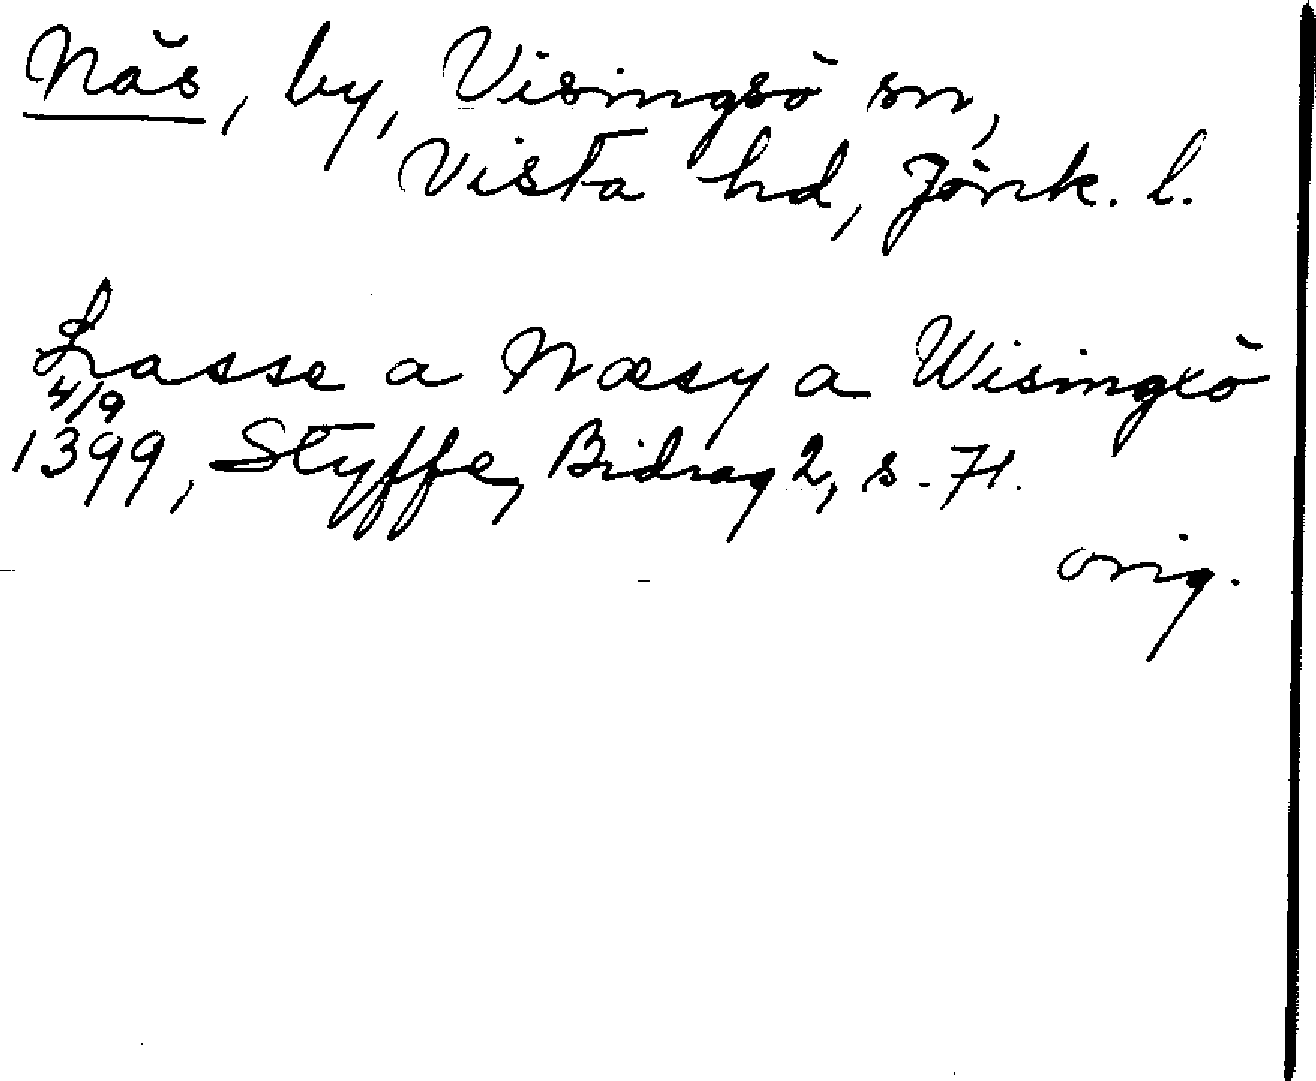 Näs, by, Visingsö sn,
Vista hd, Jönk. l.
Lasse a Næsy a Wisingxö
4/9
1399, Styffe, Bidrag 2, s. 71.
orig.